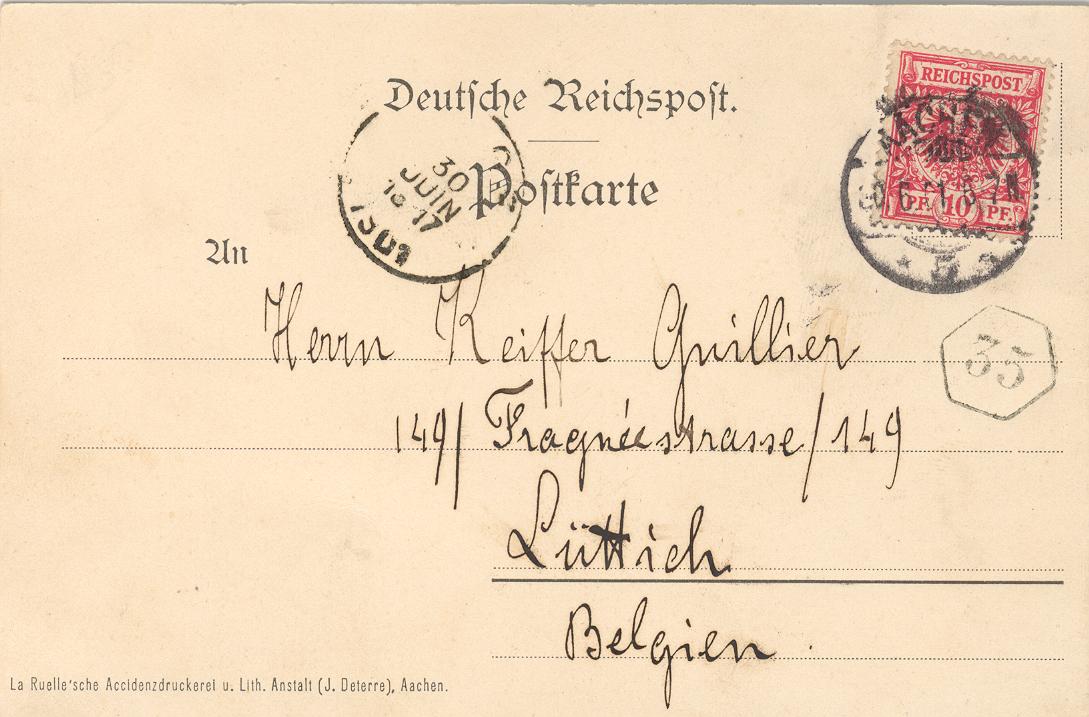 Deutsche Reichspost.
REICHSPOST
10 PF.
AACHEN
Postkarte
30
JUIN
17
1901
An
Herrn Keiffer Guillier
35
149/ Fragnéestrasse/149
Lüttich
Belgien
La Ruelle'sche Accidenzdruckerei u. Lith. Anstalt (J. Deterre), Aachen.